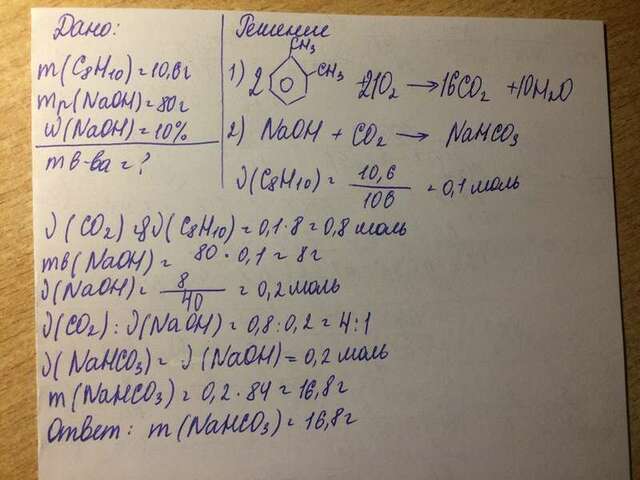 Дано:
m(C₈H₁₀)=10,6г
mр(NaOH)=80г
ω(NaOH)=10%
m в-ва=?
Решение
CH₃
CH₃
1) 2 +21O₂ → 16CO₂ +10H₂O
2) NaOH + CO₂ → NaHCO₃
ν(C₈H₁₀) = 10,6/106 = 0,1 моль
ν(CO₂) = 8ν(C₈H₁₀) = 0,1·8 = 0,8 моль
mв(NaOH) = 80·0,1 = 8г
ν(NaOH) = 8/40 = 0,2моль
ν(CO₂):ν(NaOH) = 0,8:0,2 = 4:1
ν(NaHCO₃) = ν(NaOH) = 0,2 моль
m(NaHCO₃) = 0,2·84 = 16,8г
Ответ: m(NaHCO₃) = 16,8г